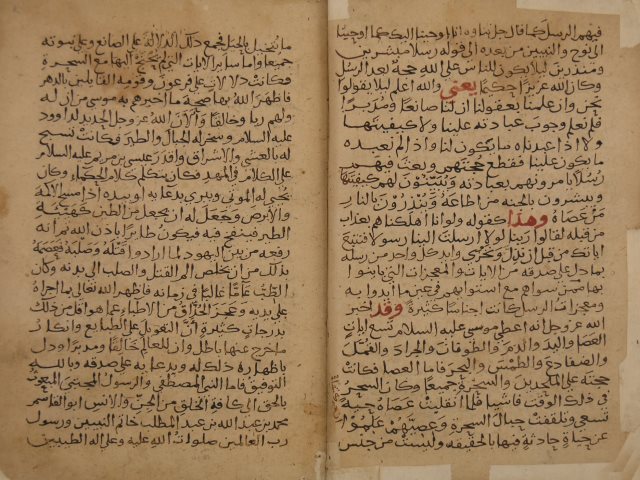 فيهم الرسل كما قال جل ثناؤه انا اوحينا اليك كما اوحينا
الى نوح والنبيين من بعده الى قوله رسلا مبشرين
ومنذرين ليلا يكون للناس على الله حجة بعد الرسل
وكان الله عزيزا حكيما يعني والله اعلم ليلا يقولوا
نحن وان علمنا بعقولنا ان لنا صانعا ومدبرا
فلم نعلم وجوب عبادته علينا ولا كيفيتها
ولا اذا عبدناه ما يكون لنا واذا لم نعبده
ما يكون علينا فقطع حجتهم وبعث فيهم
رسلا يامرونهم بعبادته ويبينون لهم كيفيتها
ويبشرون بالجنه من اطاعه وينذرون بالنار
من عصاه وهذا كقوله ولو انا اهلكناهم بعذاب
من قبله لقالوا ربنا لولا ارسلت الينا رسولا فنتبع
اياتك من قبل ان نذل ونخزى وايد كل واحد من رسله
بما دل على صدقه من الايات والمعجزات التي باينوا
بها من سواهم مع استوايهم في عين ما ايدوا به
ومعجزات الرسل كانت اجناسا كثيرة وقد اخبر
الله عز وجل انه اعطى موسى عليه السلام تسع ايات
العصا واليد والدم والطوفان والجراد والقمل
والضفادع والطمس والبحر فاما العصا فكانت
حجته على الملحدين والسحرة جميعا وكان السحر
في ذلك الوقت فاشيا فلما انقلبت عصاه حية
تسعى وتلقفت حبال السحرة وعصيهم علموا
عن حياة حادثة فيها بالحقيقه وليست من جنس
ما يتخيل بالحيل فجمع ذلك الدلالة على الصانع وعلى نبوته
جميعا واما ساير الايات التي لم يحتج اليها مع السحرة
فكانت دلالات على فرعون وقومه القايلين بالدهر
فاظهر الله بها صحة ما اخبرهم به موسى من ان له
ولهم ربا وخالقا والان الله عز وجل الحديد لداود
عليه السلام وسخر له الجبال والطير فكانت تسبح
له بالعشي والاشراق واقدر عيسى بن مريم عليه السلام
على الكلام في المهد فكان يتكلم كلام الحكماء وكان
يحيي له الموتى ويبري بدعايه او بيده اذا مسح الاكمه
والابرص وجعل له ان يجعل من الطين كهيئة
الطير فينفخ فيه فيكون طايرا باذن الله ثم انه
رفعه من بين اليهود لما ارادوا قتله وصلبه فعصمه
بذلك من ان يخلص الم القتل والصلب الى بدنه وكان
الطب عاما غالبا في زمانه فاظهر الله تعالى بما اجراه
على يديه وعجز الحذاق من الاطباء عما هو اقل من ذلك
بدرجات كثيرة ان التعويل على الطبايع وانكار
ما خرج عنها باطل وان للعالم خالقا ومدبرا ودل
باظهاره ذلك له وبدعايه على صدقه وبالله
التوفيق فاما النبي المصطفى والرسول المجتبى المبعوث
بالحق الى كافة الخلق من الجن والانس ابو القاسم
محمد بن عبد الله بن عبد المطلب خاتم النبيين ورسول
رب العالمين صلوات الله عليه وعلى اله الطيبين